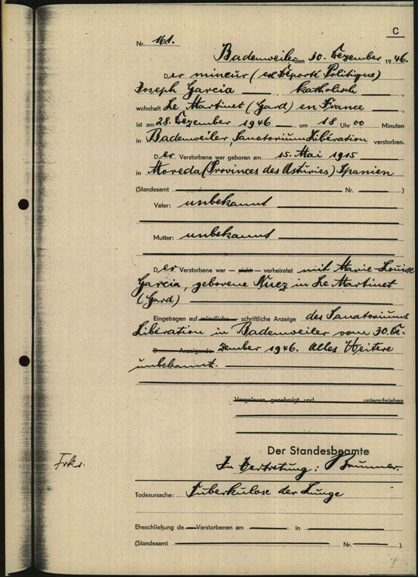 C
Nr. 161.
Badenweiler, den 30. Dezember 1946.
Der mineur (ex Déporté Politique)
Joseph Garcia katholisch
wohnhaft Le Martinet (Gard) en France
ist am 28. Dezember 1946 um 18 Uhr 00 Minuten
in Badenweiler, Sanatorium Libération verstorben.
Der Verstorbene war geboren am 15. Mai 1915
in Moreda (Provinces des Asturies) Spanien
(Standesamt Nr. )
Vater: unbekannt
Mutter: unbekannt
Der Verstorbene war nicht verheiratet mit Marie-Louise
Garcia, geborene Nuez in Le Martinet
(Gard)
Eingetragen auf mündliche schriftliche Anzeige des Sanatoriums
Libération in Badenweiler vom 30. De-
Anzeigende zember 1946. Alles Weitere
unbekannt.
Vorgelesen, genehmigt und unterschrieben
Der Standesbeamte
In Vertretung: Brunner
Todesursache: Tuberkulose der Lunge
Eheschliessung de Verstorbenen am in
(Standesamt Nr. ).